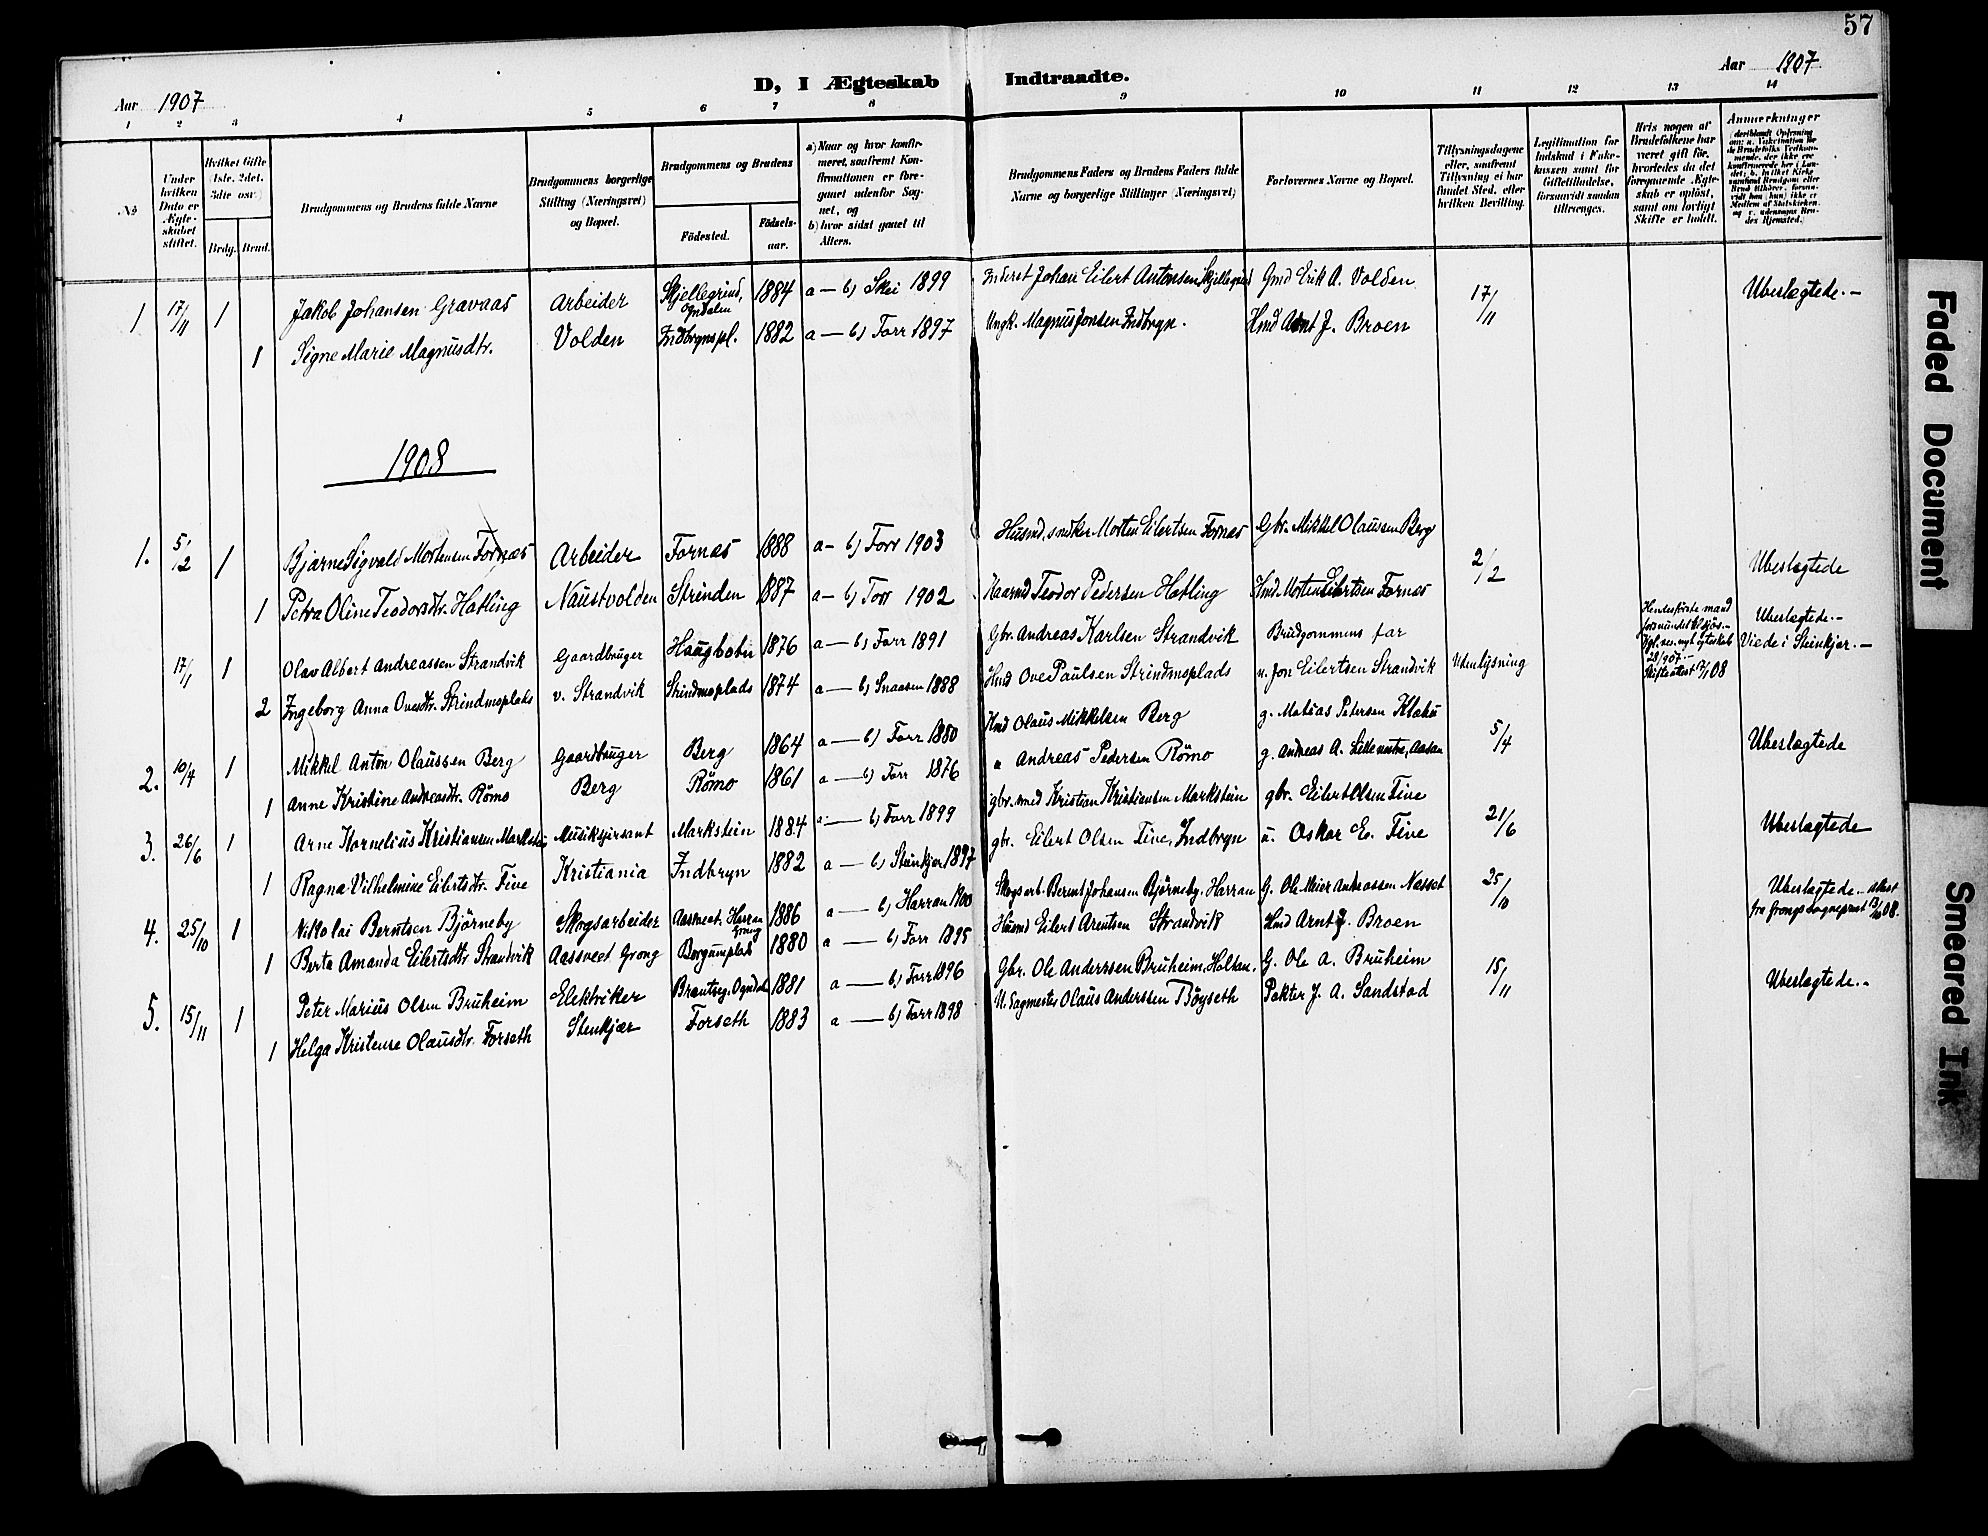 57
D, I Ægteskab Indtraadte.
Aar 1907
Aar 1907
1 2 3 4 5 6 7 8 9 10 11 12 13 14
No
Under hvilken Dato er Ægteskabet stiftet.
Hvilket Gifte (1ste, 2det, 3dte osv.)
Brdg. Brud.
Brudgommens og Brudens fulde Navne
Brudgommens borgerlige Stilling (Næringsvei) og Bopæl.
Brudgommens og Brudens
Födested.
Födsels-aar.
a) Naar og hvor konfirmeret, saafremt Konfirmationen er foregaaet udenfor Sognet, og
b) hvor sidst gaaet til Alters.
Brudgommens Faders og Brudens Faders fulde Navne og borgerlige Stillinger (Næringsvei)
Forlovernes Navne og Bopæl.
Tillysningsdagene eller, saafremt Tillysning ei har fundet Sted, efter hvilken Bevilling.
Legitimation for Indskud i Enkekassen samt for Giftetilladelse, forsaavidt saadan tiltrænges.
Hvis nogen af Brudefolkene har været gift før, hvorledes da det foregaaende Ægteskab er opløst, samt om lovligt Skifte er holdt.
Anmærkninger
1 17/11 1 Jakob Johansen Gravaas Arbeider Skjellegrind, Ogndalen 1884 a — b) Skei 1899 Inderst Johan Eilert Antonsen Skjellegrind Gmd Erik A. Volden 17/11 Ubeslægtede.—
1 Signe Marie Magnusdtr. Volden Indbrynspl. 1882 a — b) Forr 1897 Ungk. Magnus Jonsen Indbryn. Hmd Arnt J. Broen
1908
1. 5/2 1 Bjarne Sigvald Mortensen Fornæs Arbeider Fornæs 1888 a - b) Forr 1903 Husmd. snedker Morten Eilertsen Fornæs Gbr. Mikkel Olaussen Berg 2/2 Ubeslægtede
1 Petra Oline Teodorsdtr. Hatling Naustvolden Strinden 1887 a - b) Forr 1902 Kaarmd Teodor Pedersen Hatling Hmd. Morten Eilertsen Fornæs
17/1 1 Olav Albert Andreassen Strandvik Gaardbruger 1876 a — b) Forr 1891 Gbr. Andreas Karlsen Strandvik Brudgommens far Utenlysning Hendes første mand 08 Ubeslægtede.— Viede i Steinkjær.—
2 Ingeborg Anna Ovesdtr. Strindmoplads v. Strandvik Strindmoplads 1874 a — b) Snaasen 1888 Hmd Ove Paulsen Strindmoplads u. Jon Eilertsen Strandvik
2. 10/4 1 Mikkel Anton Olaussen Berg Gaardbruger Berg 1864 a — b) Forr 1880 Hmd Olaus Mikkelsen Berg g. Matias Petersen Klæku 5/4 Ubeslægtede
1 Anne Kristine Andreasdtr. Römo Berg Römo 1861 a — b) Forr 1876 " Andreas Pedersen Römo g. Andreas A. Lillementre, Aasan
3. 26/6 1 Arne Kornelius Kristiansen Markstein Musiksjersant Markstein 1884 a — b) Forr 1899 gbr. smed Kristian Kristiansen Markstein gbr. Eilert Olsen Five 21/6 Ubeslægtede
1 Ragna Vilhelmine Eilertsdtr. Five Kristiania Indbryn 1882 a — b) Steinkjer 1897 gbr. Eilert Olsen Five, Indbryn u. Oskar E. Five
4. 25/10 1 Nikolai Berntsen Björneby Skogsarbeider Harran Grong 1886 a — b) Harran 1900 Skogsarb. Bernt Johansen Björneby, Harran G. Ole Meier Andreassen Nesset 25/10 Ubeslægtede.— attest fra Grongs Sogneprest 13/10 08.
1 Berta Amanda Eilertsdtr Strandvik Aassveet Grong Borgumplads 1880 a — b) Forr 1895 Husmd Eilert Arentsen Strandvik Hmd Arnt J. Broen
5. 15/11 1 Peter Marius Olsen Bruheim Elektriker Brantseg, Ogndal 1881 a — b) Forr 1896 Gbr. Ole Anderssen Bruheim, Holtan. G. Ole A. Bruheim 15/11 Ubeslægtede.-
1 Helga Kristense Olausdtr. Forseth Stenkjær Forseth 1883 a — b) Forr 1898 U. Sagmester Olaus Anderssen Böyseth Pakter J. A. Sandstad
Faded Document
Smeared Ink